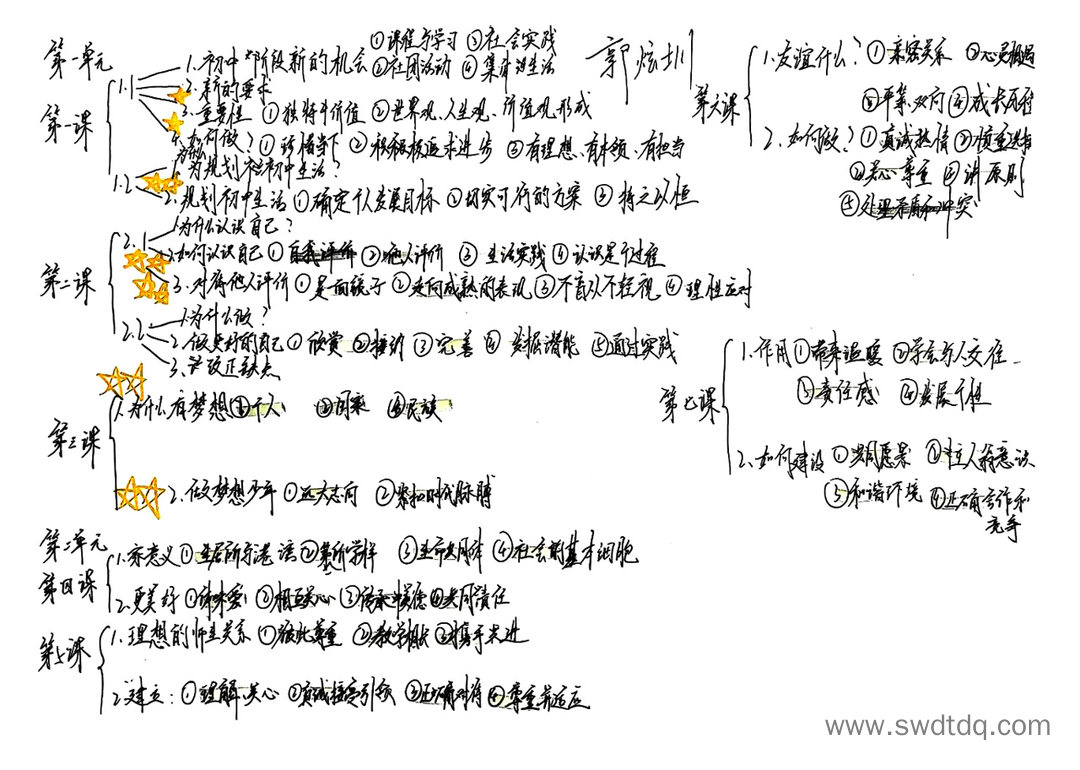 第一单元
第一课
1.1
1.初中阶段新的机会 ①课程与学习 ③社会实践
②社团活动 ④集体生活
2.新的要求
3.重要性 ①独特价值 ②世界观、人生观、价值观形成
4.如何做? ① ②积极追求进步 ③有理想、有本领、有担当
1.2
1.为什么规划初中生活?
2.规划初中生活 ①确定个人发展目标 ②切实可行的方案 ③持之以恒
第二课
2.1
1.为什么认识自己?
2.如何认识自己 ①自我评价 ②他人评价 ③生活实践 ④认识是个过程
3.对待他人评价 ①是一面镜子 ②走向成熟的表现 ③不盲从不轻视 ④理性应对
2.2
1.为什么做?
2.做更好的自己 ①欣赏 ②接纳 ③完善 ④发掘潜能 ⑤通过实践
3.改正缺点
第三课
1.为什么有梦想 ①个人 ②国家 ③民族
2.做梦想少年 ①远大志向 ②紧扣时代脉搏
第二单元
第四课
1.家意义 ① ② ③生命共同体 ④社会的基本细胞
2.更美好 ① ②相互关心 ③ ④共同责任
第五课
1.理想的师生关系 ①彼此尊重 ②教学相长 ③携手共进
2.建立: ①理解关心 ② 引领 ③正确对待 ④尊重并适应
郭炫圳
第六课
1.友谊什么? ①亲密关系 ②心灵相遇
③平等、双向 ④成长
2.如何做? ①真诚热情 ②慎重选择
③关心尊重 ④讲原则
⑤处理矛盾和冲突
第七课
1.作用 ①带来温暖 ②学会与人交往
③责任感 ④发展个性
2.如何建设 ①共同愿景 ②主人翁意识
③和谐环境 ④正确合作和
竞争
www.swdtdq.com